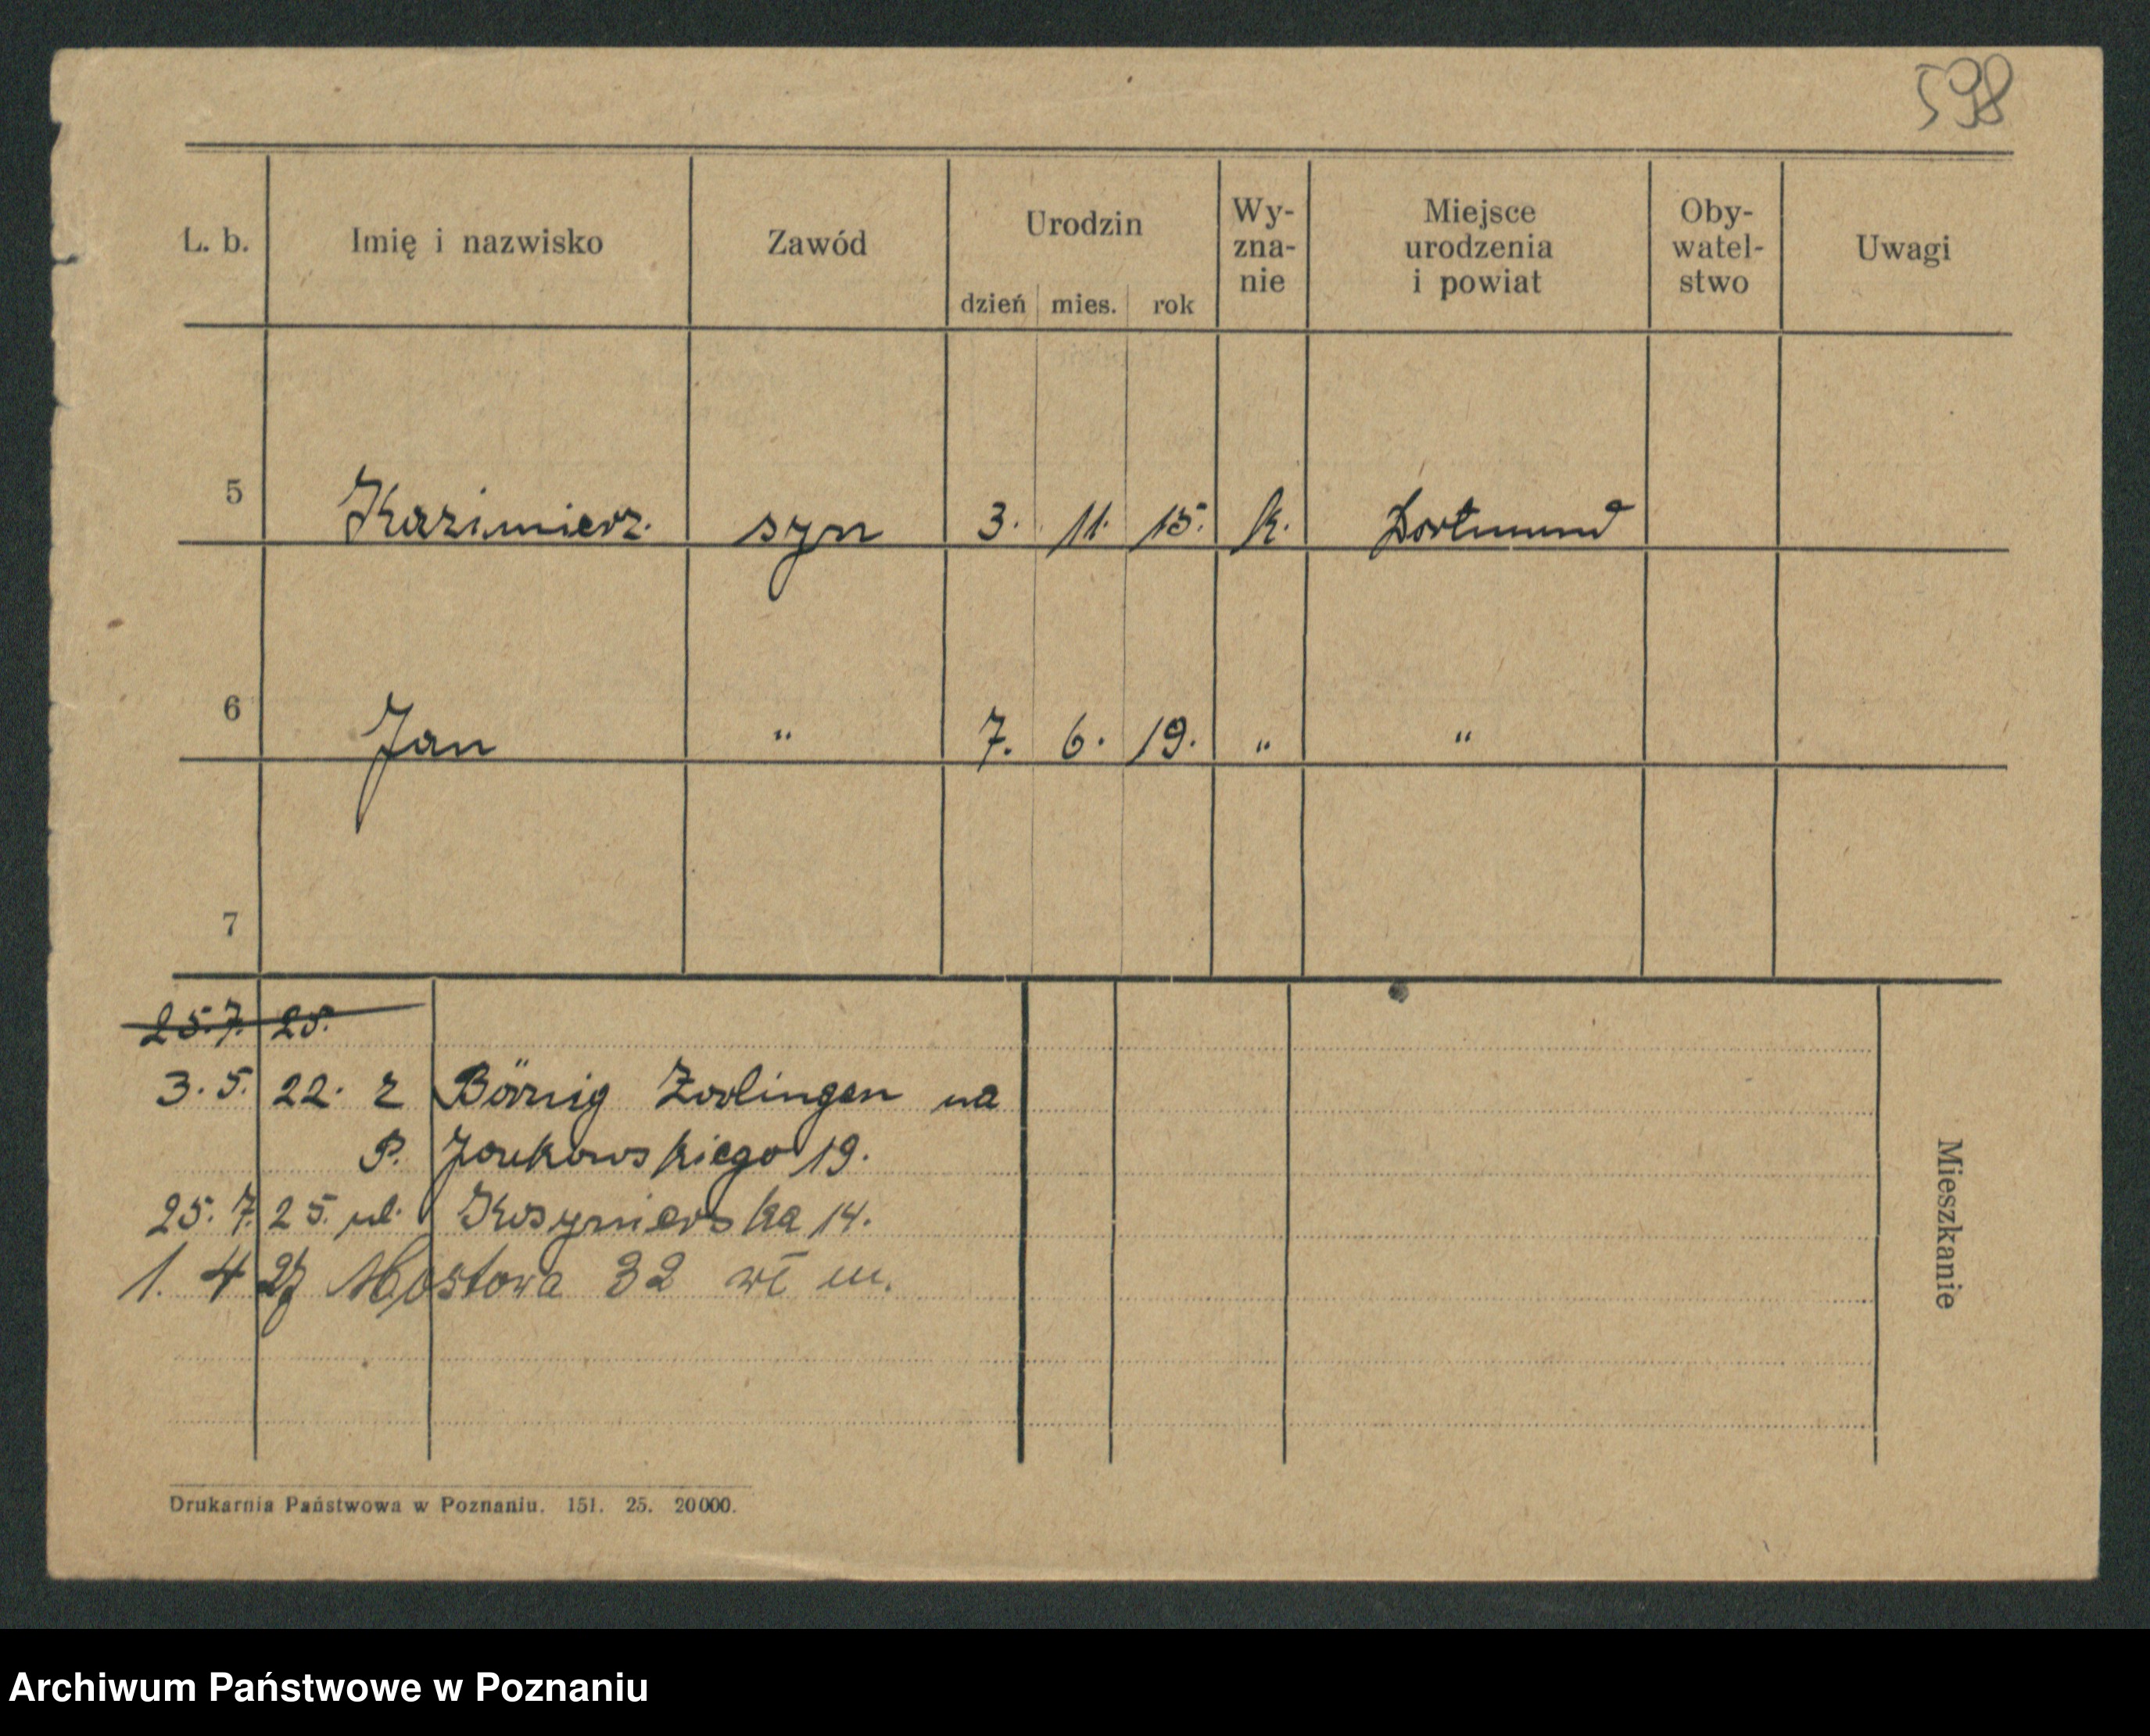 598
L. b. Imię i nazwisko Zawód Urodzin dzień mies. rok Wy-zna-nie Miejsce urodzenia i powiat Oby-watel-stwo Uwagi
5 Kazimierz. syn 3. 11. 15. k. Dortmund
6 Jan " 7. 6. 19. " "
7
25. 7. 25.
3. 5. 22. z Börnig na
P. 19.
25. 7. 25. ul. 14.
1. 4 27 Mostowa 32 wł m.
Mieszkanie
Drukarnia Państwowa w Poznaniu. 151. 25. 20000.
Archiwum Państwowe w Poznaniu